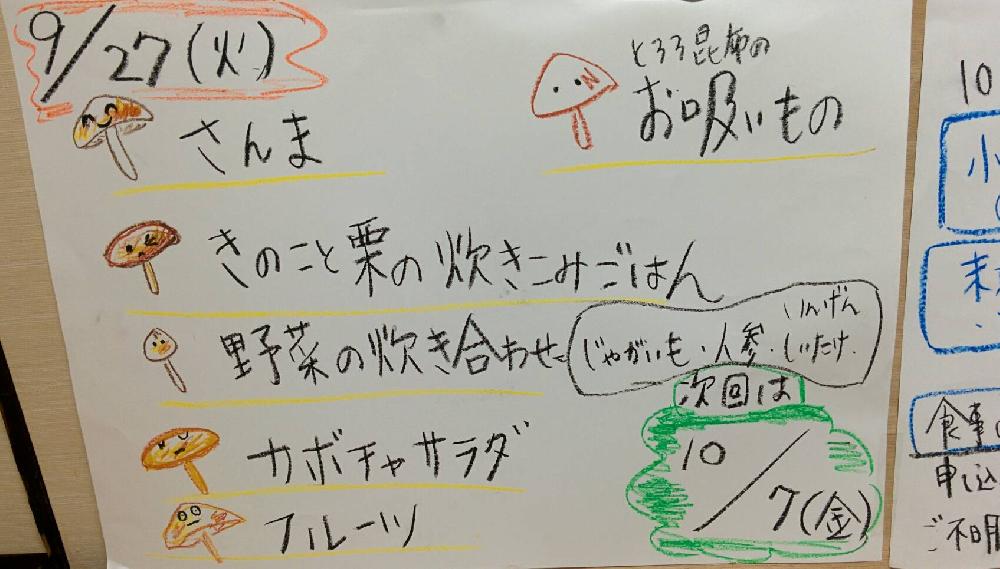 9/27(火)
さんま
とろろ昆布の
お吸いもの
きのこと栗の炊きこみごはん
野菜の炊き合わせ
いんげん
じゃがいも・人参・しいたけ
カボチャサラダ
フルーツ
次回は
10/7(金)
10
食事
申込
ご不明